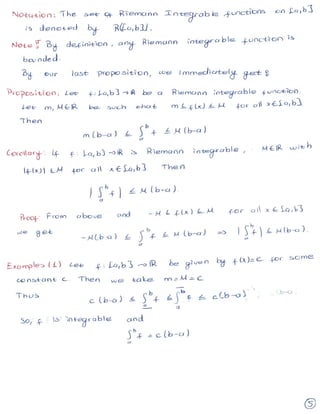 Notation: The set of Riemann Integrable functions on [a,b]
is denoted by R([a,b]).
Note: By definition, any Riemann integrable function is
bounded.
By our last proposition, we immediately get:
Proposition: Let f:[a,b]→ℝ be a Riemann integrable function.
Let m, M∈ℝ be such that m ≤ f(x) ≤ M for all x∈[a,b]
Then
m(b-a) ≤ ∫_a^b f ≤ M(b-a)
Corollary: If f: [a,b]→ℝ is Riemann integrable, M∈ℝ with
|f(x)| ≤ M for all x∈[a,b] Then
|∫_a^b f| ≤ M(b-a).
Proof: From above and -M ≤ f(x) ≤ M for all x∈[a,b]
we get -M(b-a) ≤ ∫_a^b f ≤ M(b-a) ⇒ |∫_a^b f| ≤ M(b-a).
Examples (1) Let f:[a,b]→ℝ be given by f(x)=c for some
constant c. Then we take m=M=c
Thus c(b-a) ≤ ∫_a^b f ≤ ∫_a^b f ≤ c(b-a)
So, f is integrable and
∫_a^b f = c(b-a)
5